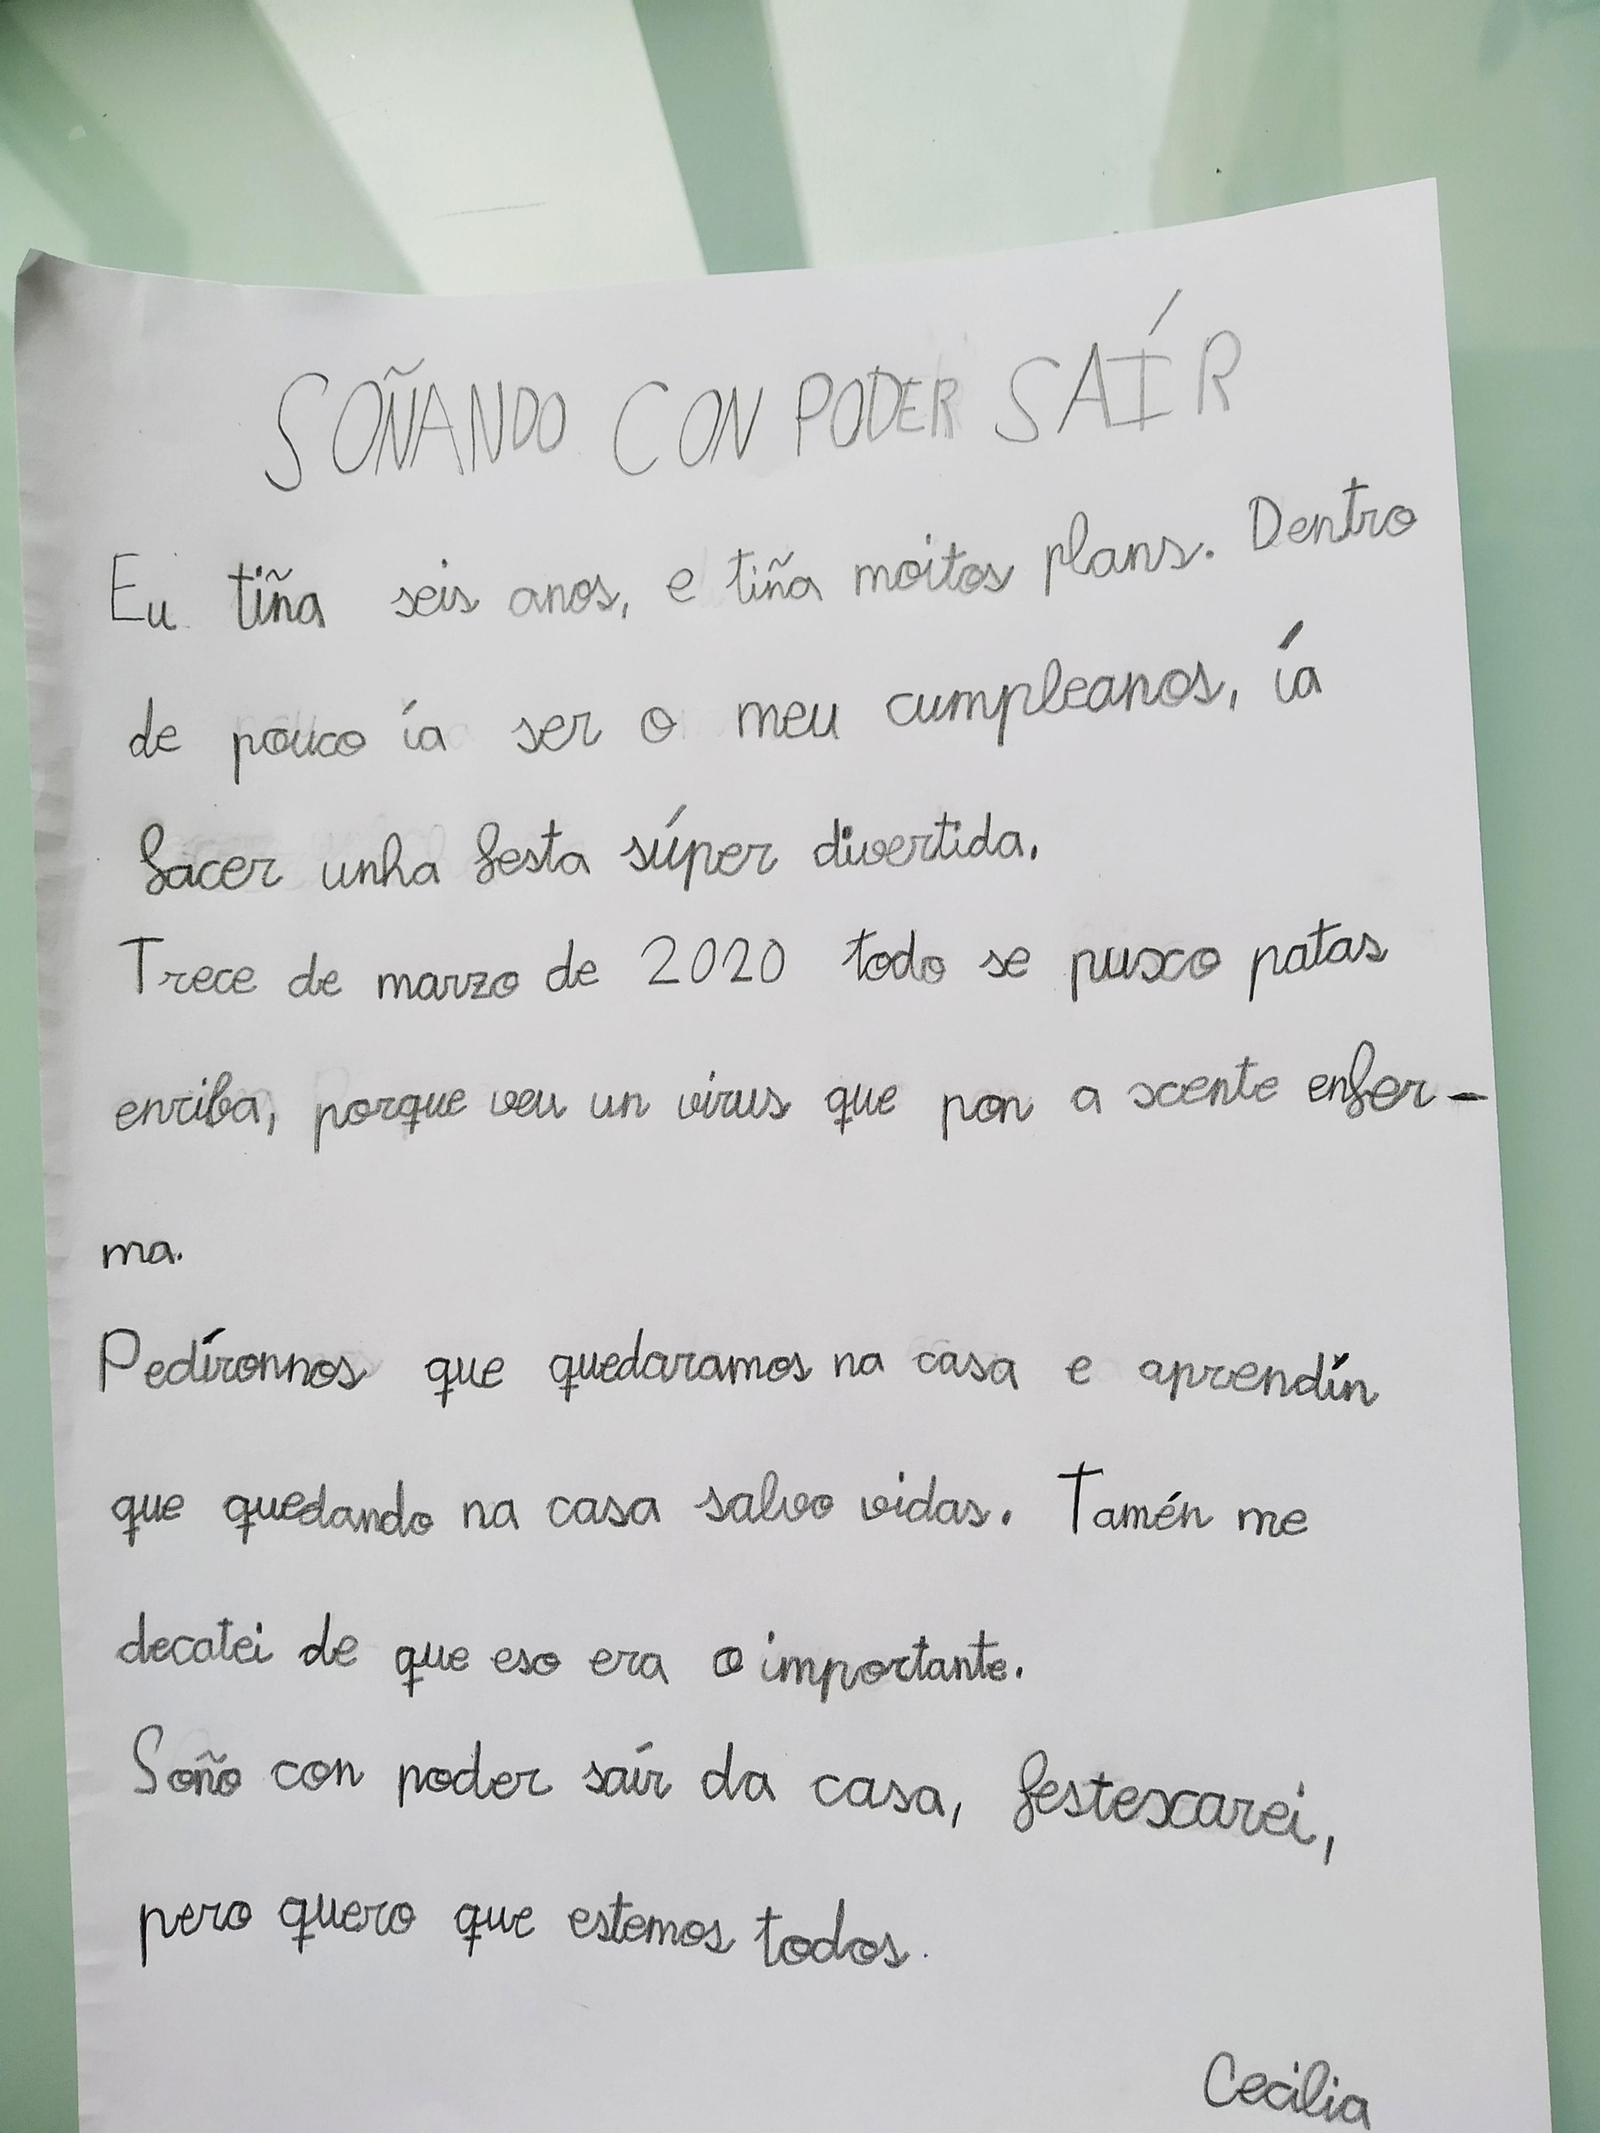 SOÑANDO CON PODER SAÍR
Eu tiña seis anos, e tiña moitos plans. Dentro
de pouco ía ser o meu cumpleanos, ía
facer unha festa súper divertida.
Trece de marzo de 2020 todo se puxo patas
enriba, porque veu un virus que pon a xente enfer-
ma.
Pedíronnos que quedaramos na casa e aprendín
que quedando na casa salvo vidas. Tamén me
decatei de que eso era o importante.
Soño con poder saír da casa, festexarei,
pero quero que estemos todos.
Cecilia